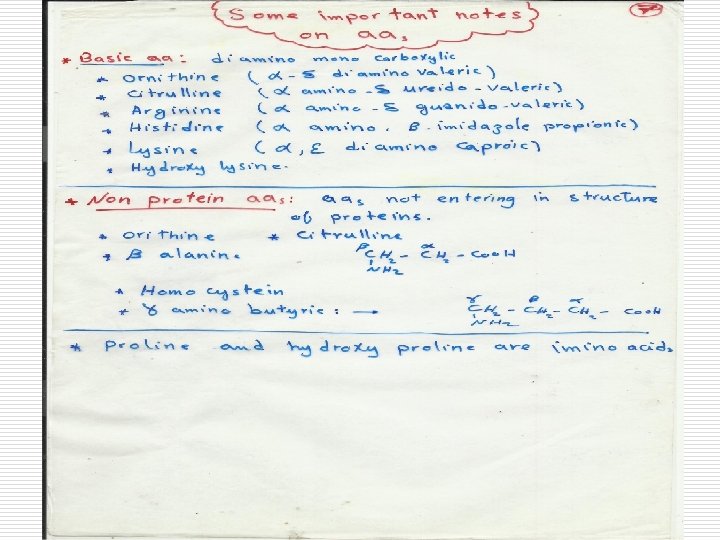 Some important notes
on aas
7
* Basic aa: di amino mono carboxylic
* Ornithine (α-δ diamino valeric)
* Citrulline (α amino-δ ureido-valeric)
* Arginine (α amino-δ guanido-valeric)
* Histidine (α amino. β.imidazole propionic)
* Lysine (α,ε di amino caproic)
* Hydroxy lysine.
* Non protein aas: aas not entering in structure
of proteins.
* Orithine * Citrulline
* β alanine β α
CH2- CH2-COOH
NH2
* Homo cystein
* γ amino butyric: → γ β α
CH2-CH2-CH2- COOH
NH2
* Proline and hydroxy proline are imino acids